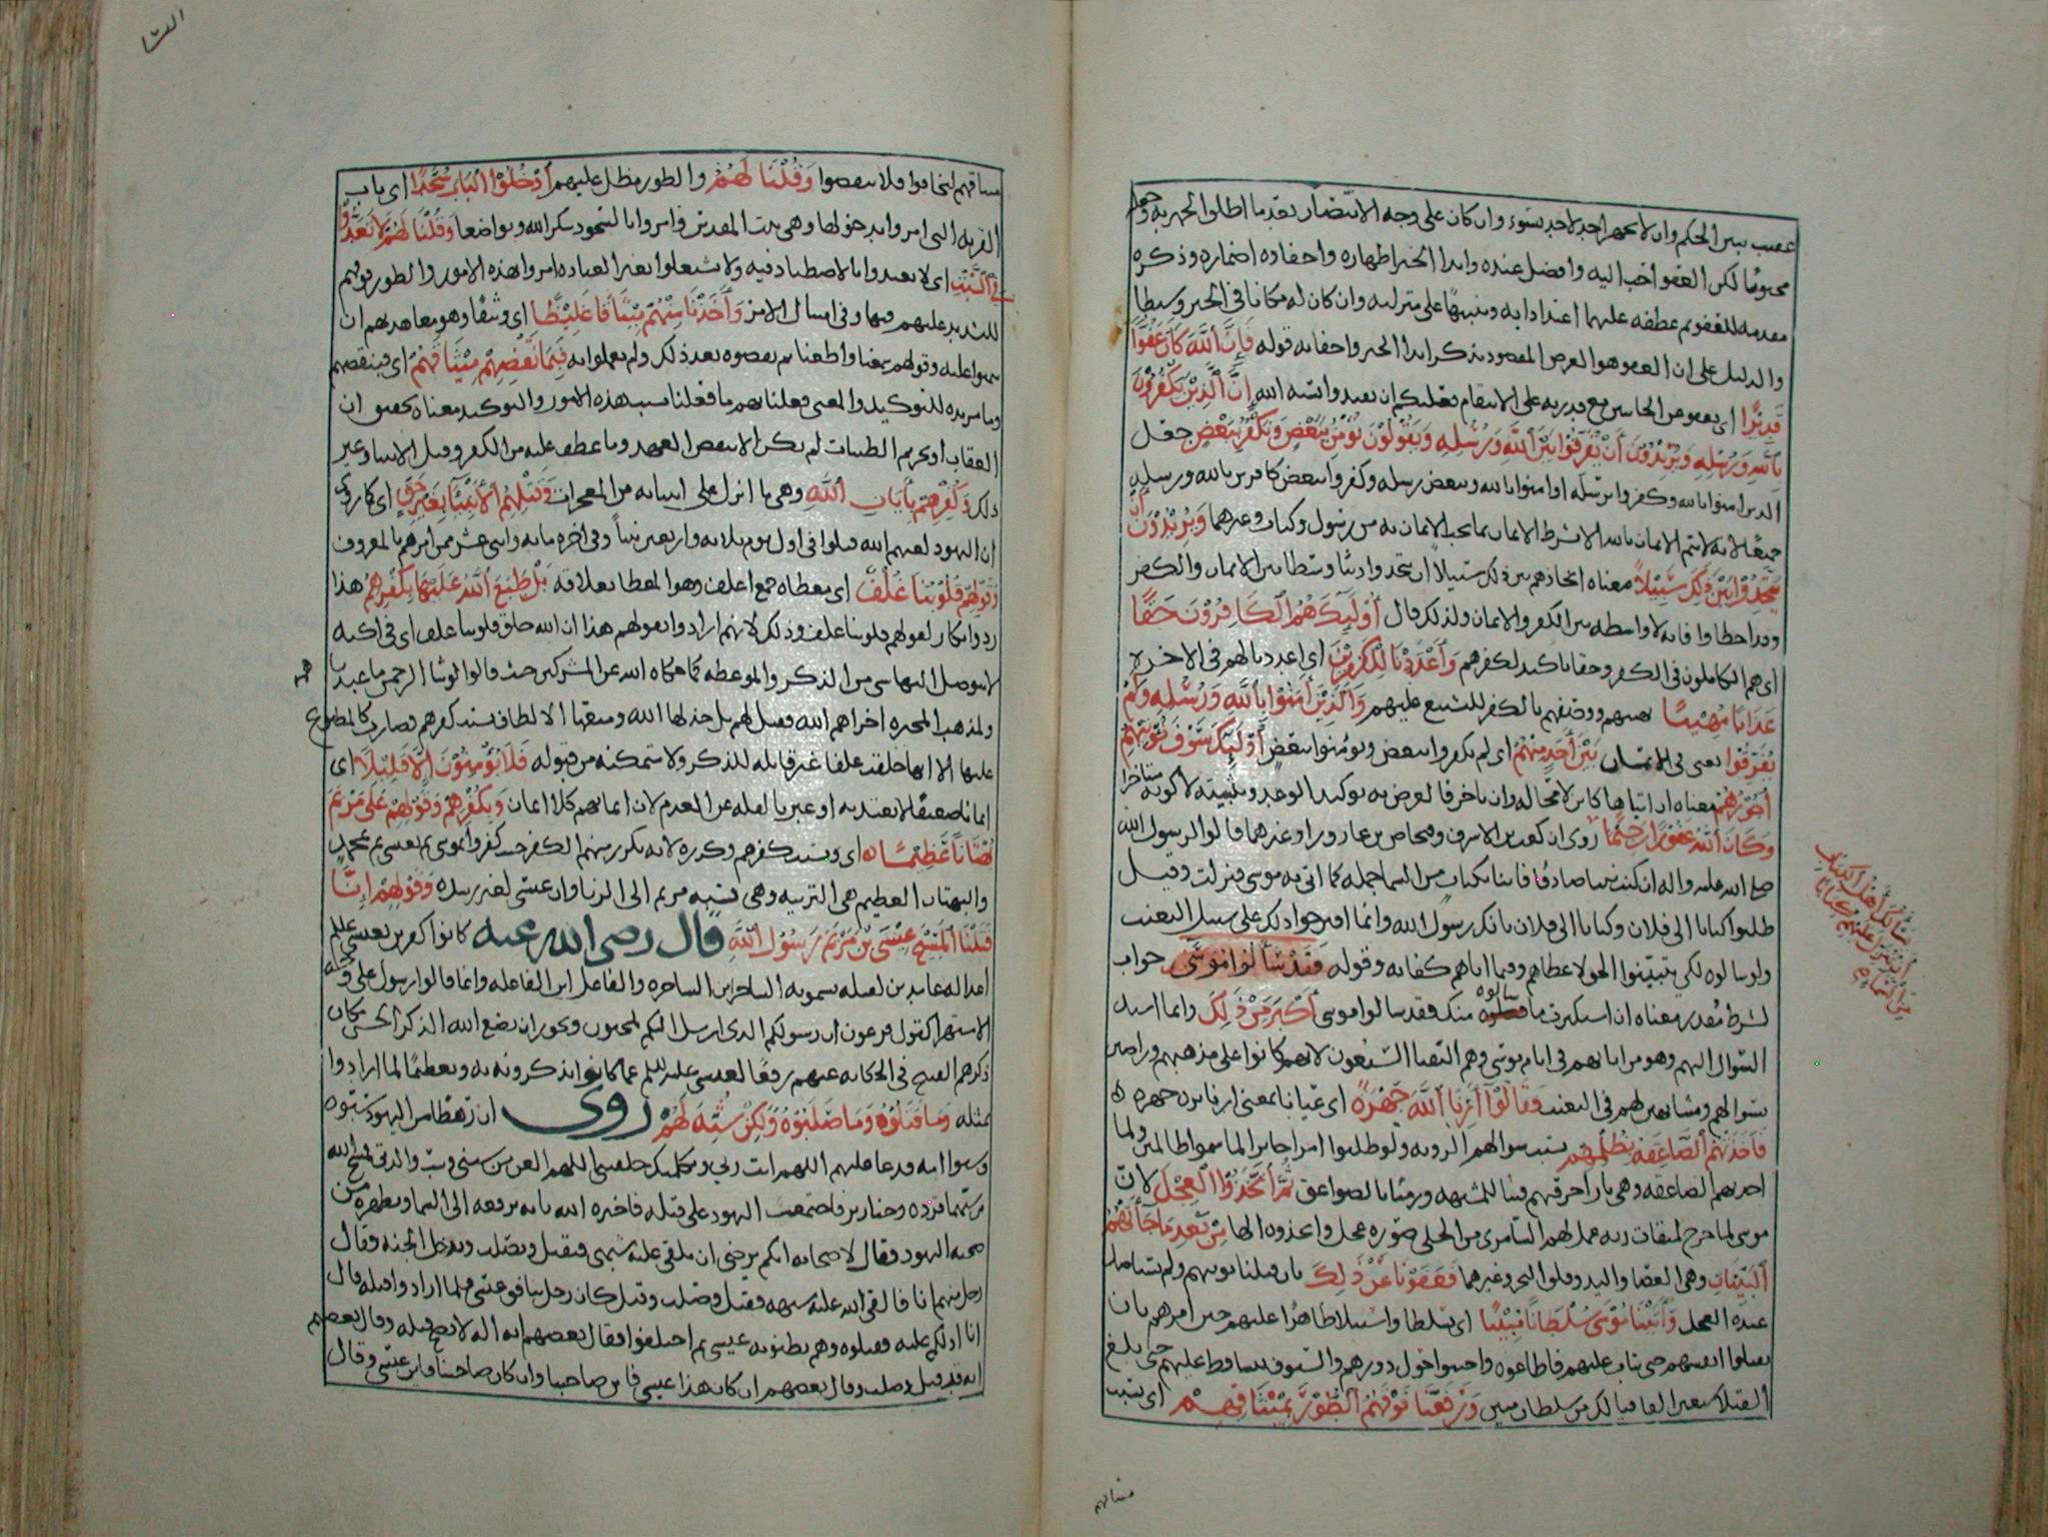 عقيب سبب الحكم وان لا يجهر احد لاحد بسوء وان كان على وجه الانتصار بعد ما اطلق الجهر به وجعله
محبوبًا لكن العفو احب اليه وافضل عنده وابدا الخير اظهاره واخفاوه اضماره وذكره
مقدمه للعفو ثم عطفه عليهما اعتدادا به وتنبيهًا على منزلته وان كان له مكانا في الخير وسيطا
والدليل على ان العفو هو الغرض المقصود بذكر ابدا الخير واخفائه قوله فَإِنَّ اَللَّهَ كَانَ عَفُوًّا
قَدِيْرًا اي يعفو عن الجانين مع قدرته على الانتقام فعليكم ان تقتدوا بسنه الله إِنَّ اَلَّذِيْنَ يَكْفُرُوْنَ
بِاللَّهِ وَرُسُلِهِ وَيُرِيْدُوْنَ أَنْ يُفَرِّقُوا بَيْنَ اَللَّهِ وَرُسُلِهِ وَيَقُوْلُوْنَ نُؤْمِنُ بِبَعْضٍ وَنَكْفُرُ بِبَعْضٍ جعل
الذين امنوا بالله وكفروا برسله او امنوا بالله وببعض رسله وكفروا ببعض كافرين بالله ورسله
جميعًا لانه لا يتم الايمان بالله الا بشرط الايمان بما يجب الايمان به من رسول وكتاب وغيرهما وَيُرِيْدُوْنَ أَنْ
يَتَّخِذُوْا بَيْنَ ذَلِكَ سَبِيْلاً معناه اتخاذهم بين ذلك سبيلاً ان يتخذوا دينًا وسطا بين الايمان والكفر
وقد اخطاوا فانه لا واسطه بين الكفر والايمان ولذلك قال أُوْلَئِكَ هُمُ اَلْكَافِرُوْنَ حَقًّا
اي هم الكاملون في الكفر وحقا تاكيد لكفرهم وَأَعْتَدْنَا لِلْكَفِرِيْنَ اي اعددنا لهم في الاخره
عَذَابًا مُهِيْنًا يهينهم ووصفهم بالكفر للتشنيع عليهم وَاَلَّذِيْنَ أَمَنُوْا بِاَللَّهِ وَرُسُلِهِ وَلَمْ
يُفَرِّقُوا يعني في الايمان بَيْنَ أَحَدٍ مِنْهُمْ اي لم يكفروا ببعض ويومنوا ببعض أُوْلَئِكَ سَوْفَ نُؤْتِيْهِمْ
أُجُوْرَهُمْ معناه ان اتيانها كاين لا محاله وان تاخر فالغرض به توكيد الوعد وتثبيته لا كونه متاخرا
وَكَانَ اَللَّهُ غَفُوْرًا رَحِيْمًا روى ان كعب بن الاشرف وفنحاص بن عازورا وغيرهما قالوا لرسول الله
صلى الله عليه واله ان كنت نبيا صادقا فاتنا بكتاب من السما جمله كما اتى به موسى فنزلت وقيل
طلبوا كتابا الى فلان وكتابا الى فلان بانك رسول الله وانما اقترحوا ذلك على سبيل التعنت
ولو سالوه لكي يتبينوا الحق لاعطاهم وفيما اتاهم كفايه وقوله فَقَدْ سَأَلُوْا مُوْسَى جواب
لشرط مقدر معناه ان استكبرت ما سالوه منك فقد سالوا موسى أَكْبَرَ مِنْ ذَلِكَ وانما اسند
السوال اليهم وهو من ابائهم في ايام موسى وهم النقبا السبعون لانهم كانوا على مذهبهم وراضين
بسوالهم ومشابهين لهم في التعنت فَقَالُوْا أَرِنَا اَللَّهَ جَهْرَةً اي عيانا بمعنى ارناه نره جهره
فَأَخَذَتْهُمُ اَلصَّاعِقَةُ بِظُلْمِهِمْ بسبب سوالهم الرويه ولو طلبوا امرا جايزا لما سموا ظالمين ولما
اخذتهم الصاعقه وهي نار احرقتهم فتبا للمشبهه ورميًا بالصواعق ثُمَّ اَتَّخَذُوْا اَلْعِجْلَ لان
موسى لما خرج لميقات ربه عمل لهم السامري من الحلي صوره عجل واتخذوه الها مِنْ بَعْدِ مَا جَأَتْهُمُ
اَلْبَيِّنَاتُ وهي العصا واليد وفلق البحر وغيرهما فَعَفَوْنَا عَنْ ذَلِكَ بان قبلنا توبتهم ولم نستاصل
عبدة العجل وَأَتَيْنَا مُوْسَى سُلْطَانًا مُبِيْنًا اي تسلطا واستيلا ظاهرًا عليهم حين امرهم بان
يقتلوا انفسهم حتى يتاب عليهم فاطاعوه واحتبوا حول دورهم والسيوف تتساقط عليهم حتى بلغ
القتلا سبعين الفا فيا لك من سلطان مبين وَرَفَعْنَا فَوْقَهُمُ اَلطُّوْرَ بِمِيْثَاقِهِمْ اي بسبب
يسألك أهل الكتاب
أن تنزل عليهم كتابا
من السماء
ميثاقهم
ميثاقهم ليخافوا فلا ينقضوا وَقُلْنَا لَهُمُ والطور مظل عليهم أُدْخُلُوْا اَلْبَابَ سُجَّدًا اي باب
القريه التي امروا بدخولها وهي بيت المقدس فامروا بالسجود شكر الله وتواضعا وَقُلْنَا لَهُمْ لاَ تَعْدُوْا
فِي اَلسَّبْتِ اي لا تعتدوا بالاصطياد فيه ولا تشتغلوا بغير العباده امروا بهذه الامور والطور فوقهم
للتشديد عليهم فيها وفي امتثال الامر وَأَخَذْنَا مِنْهُمْ مِيْثَاقًا غَلِيْظًا اي وثيقًا وهو معاهدتهم ان
يتموا عليه وقولهم سمعنا واطعنا ثم نقضوه بعد ذلك ولم يعملوا به فَبِمَا نَقْضِهِمْ مِيْثَاقَهُمْ اي فبنقضهم
وما مزيده للتوكيد والمعنى فعلنا بهم ما فعلنا بسبب هذه الامور والتوكيد معناه تحقيق ان
العقاب او تحريم الطيبات لم يكن الا بنقض العهد وما عطف عليه من الكفر وقتل الانبيا وغير
ذلك وَكُفْرِهِمْ بِأَيَاتِ اَللَّهِ وهي ما انزل على انبيائه من المعجزات وَقَتْلِهِمُ اَلأَنْبِيَأَ بِغَيْرِ حَقٍّ اي كما روي
ان اليهود لعنهم الله قتلوا في اول يوم ثلاثه واربعين نبياً وفي اخره مايه واثني عشر ممن امرهم بالمعروف
وَقَوْلِهِمْ قُلُوْبُنَا غُلْفٌ اي مغطاه جمع اغلف وهو المغطا بغلافه بَلْ طَبَعَ اَللَّهُ عَلَيْهَا بِكُفْرِهِمْ هذا
رد وانكار لقولهم قلوبنا غلف وذلك لانهم ارادوا بقولهم هذا ان الله خلق قلوبنا غلف اي في اكنه
لا يتوصل اليها شي من الذكر والموعظه كما حكاه الله عن المشركين حيث قالوا لو شا الرحمن ما عبدنا هم
ولمذهب المجبره اخزاهم الله فقيل لهم بل خذلها الله ومنعها الالطاف بسبب كفرهم فصارت كالمطبوع
عليها الا انها خلقت غلفا غير قابله للذكر ولا متمكنه من قبوله فَلاَ يُؤْمِنُوْنَ إِلاَّ قَلِيْلاً اي
ايمانا ضعيفًا لا يعتد به او عبر بالقله عن العدم لان ايمانهم كلا ايمان وَبِكُفْرِهِمْ وَقَوْلِهِمْ عَلَى مَرْيَمَ
بُهْتَانًا عَظِيْمًا اي وبسبب كفرهم وكرره لانه تكرر منهم الكفر حيث كفروا بموسى ثم بعيسى ثم بمحمد
والبهتان العظيم هي التزنيه وهي نسبه مريم الى الزنا وان عيسى لغير رشده وَقَوْلِهِمْ إِنَّا
قَتَلْنَا اَلْمَسِيْحَ عِيْسَى بْنَ مَرْيَمَ رَسُوْلَ اَللَّهِ قال رضي الله عنه كانوا كافرين بعيسى عليلم
اعدا له عامدين لقتله يسمونه الساحر ابن الساحره والفاعل ابن الفاعله وانما قالوا رسول على وجه
الاستهزا كقول فرعون ان رسولكم الذي ارسل اليكم لمجنون ويجوز ان يضع الله الذكر الحسن مكان
ذكرهم القبيح في الحكايه عنهم رفعًا لعيسى عليه السلم عما كانوا يذكرونه به وتعظيمًا لما ارادوا
بمثله وَمَا قَتَلُوْهُ وَمَا صَلَبُوْهُ وَلَكِنْ شُبِّهَ لَهُمْ روي ان رهطا من اليهود سبوه
وسبوا امه فدعا عليهم اللهم انت ربي وبكلمتك خلقتني اللهم العن من سبني وسب والدتي فمسخ الله
من سبهما قرده وخنازير فاجتمعت اليهود على قتله فاخبره الله بانه يرفعه الى السما ويطهره من
صحبه اليهود فقال لاصحابه ايكم يرضى ان يلقى عليه شبهي فيقتل ويصلب ويدخل الجنه فقال
رجل منهم انا فالقى الله عليه شبهه فقتل وصلب وقيل كان رجل ينافق عيسى فلما ارادوا قتله قال
انا ادلكم عليه فقتلوه وهم يظنونه عيسى ثم اختلفوا فقال بعضهم انه اله لا يصح قتله وقال بعضهم
انه قد قتل وصلب وقال بعضهم ان كان هذا عيسى فاين صاحبنا وان كان صاحبنا فاين عيسى وقال